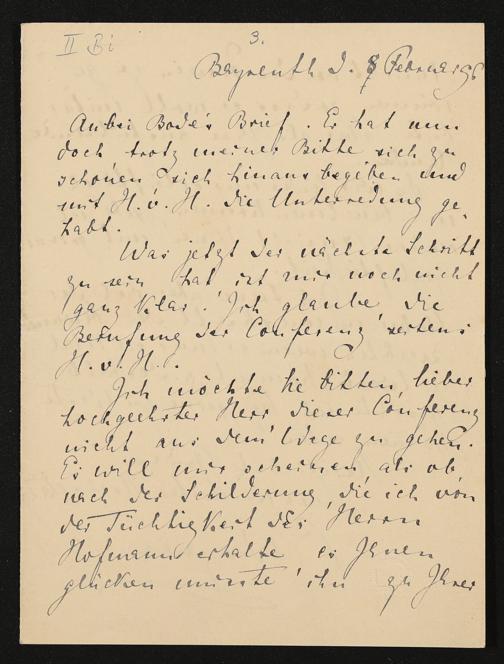 II Bi
3.
Bayreuth d. 8 Februar 96
Anbei Bode's Brief. Er hat nun
doch trotz meiner Bitte sich zu
schonen sich hinaus begeben und
mit H. v. H. die Unterredung ge-
habt.
Was jetzt der nächste Schritt
zu sein hat ist mir noch nicht
ganz klar. Ich glaube die
Berufung der Conferenz seitens
H. v. H.
Ich möchte Sie bitten lieber
hochgeehrter Herr dieser Conferenz
nicht aus dem Wege zu gehen.
Es will mir scheinen als ob
nach der Schilderung, die ich von
der Tüchtigkeit des Herrn
Hofmann erhalte es Ihnen
glücken müsste ihn zu Ihrer